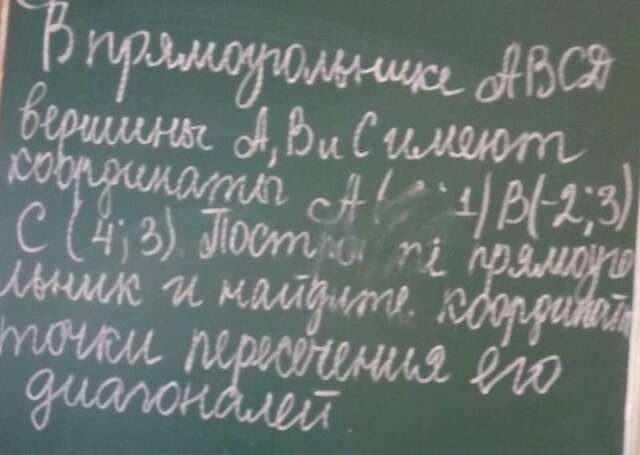 В прямоугольнике ABCD
вершины A, B и C имеют
координаты A( ;1) B(-2;3)
C (4;3). Постройте прямоуго
льник и найдите координаты
точки пересечения его
диагоналей.